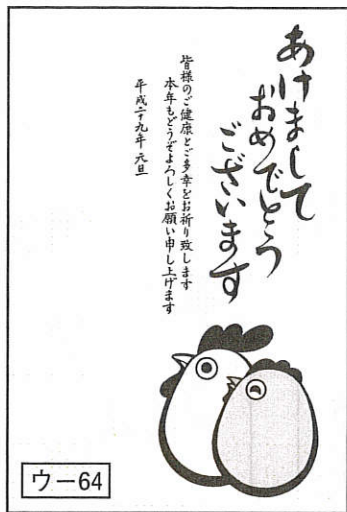 あけまして
おめでとう
ございます
皆様のご健康とご多幸をお祈り致します
本年もどうぞよろしくお願い申し上げます
平成二十九年 元旦
ウー64